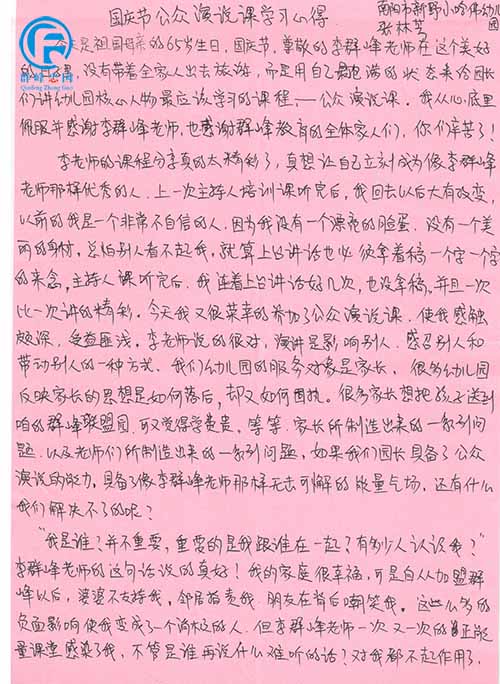 国庆节公众演说课学习心得
南阳市新野小哈佛幼儿园
张林芳
群峰忠国
Qunfeng Zhong Guo
今天是祖国母亲的65岁生日，国庆节，尊敬的李群峰老师在这个美好
的日子里，没有带着全家人出去旅游，而是用自己饱满的状态来给园长
们讲幼儿园核心人物最应该学习的课程——公众演说课。我从心底里
佩服并感谢李群峰老师，也感谢群峰教育的全体家人们，你们辛苦了！
李老师的课程分享真的太精彩了，真想让自己立刻成为像李群峰
老师那样优秀的人。上一次主持人培训课听完后，我回去以后大有改变，
以前的我是一个非常不自信的人，因为我没有一个漂亮的脸蛋，没有一个美
丽的身材，总怕别人看不起我，就算上台讲话也必须拿着稿一个字一个字
的来念，主持人课听完后，我连着上台讲话好几次，也没拿稿，并且一次
比一次讲的精彩。今天我又很荣幸的参加了公众演说课，使我感触
颇深，受益匪浅。李老师说的很对，演讲是影响别人、感召别人和
带动别人的一种方式。我们幼儿园的服务对象是家长，很多幼儿园
反映家长的思想是如何落后，却又如何固执。很多家长想把孩子送到
咱的群峰联盟园，可又觉得学费贵，等等，家长所制造出来的一系列问
题，以及老师们所制造出来的一系列问题，如果我们园长具备了公众
演说的能力，具备了像李群峰老师那样无击可解的能量气场，还有什么
我们解决不了的呢？
"我是谁？并不重要，重要的是我跟谁在一起？有多少人认识我？"
李群峰老师的这句话说的真好！我的家庭很幸福，可是自从加盟群
峰以后，婆婆不支持我，邻居指责我，朋友在背后嘲笑我，这些么多的
负面影响使我变成了一个消极的人，但李群峰老师一次又一次的正能
量课堂感染了我，不管是谁再说什么难听的话？对我都不起作用了，